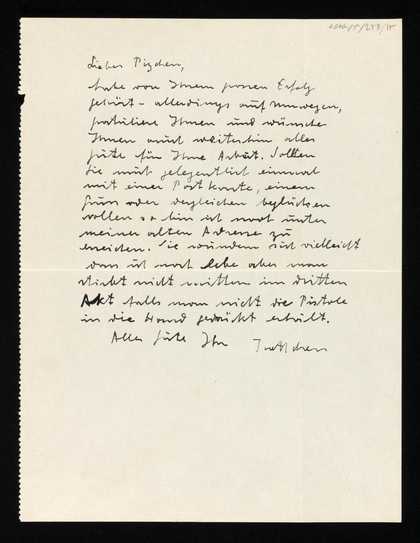 Lieber
habe von Ihrem grossen Erfolg
gehört - allerdings auf Umwegen,
gratuliere Ihnen und wünsche
Ihnen auch weiterhin alles
gute für Ihre Arbeit. Sollten
Sie mich gelegentlich einmal
mit einer Postkarte, einem
Gruss oder dergleichen beglücken
wollen so bin ich noch unter
meiner alten Adresse zu
erreichen. Sie wundern sich vielleicht
dass ich noch lebe aber man
stirbt nicht mitten im dritten
Akt falls man nicht die Pistole
in die Hand gedrückt erhält.
Alles gute Ihr